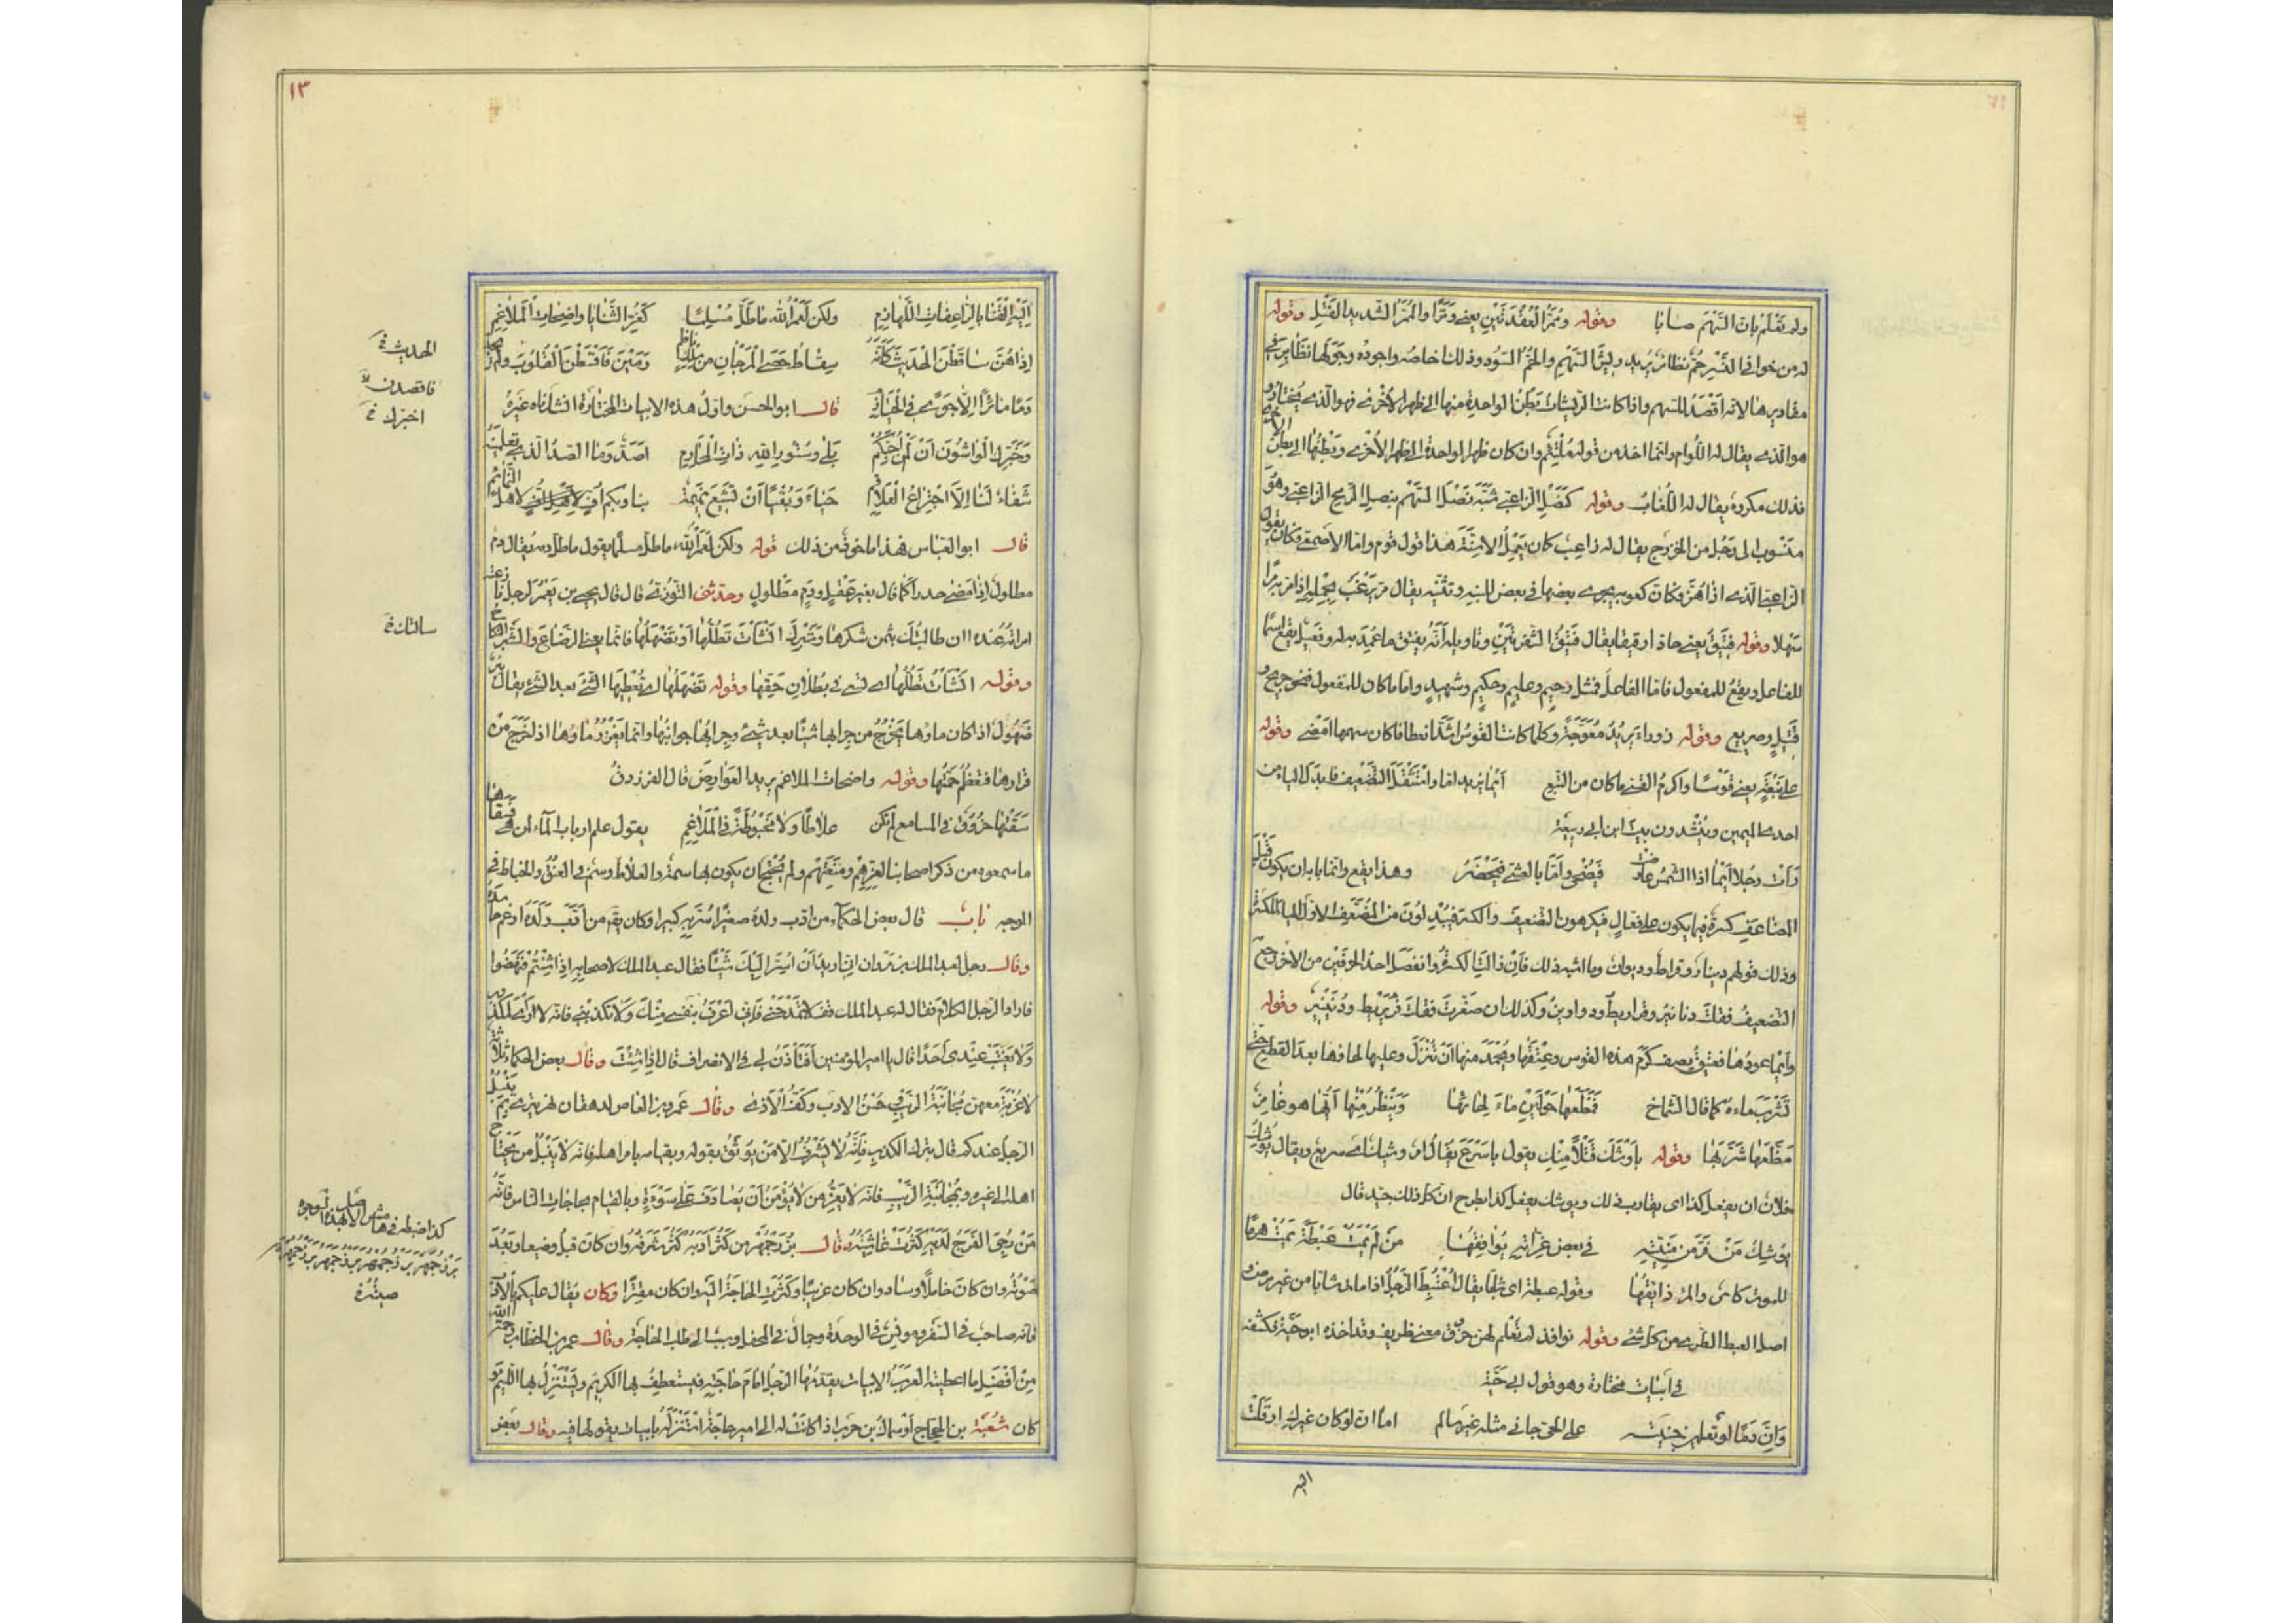 ولم تعلم بان السهم صابا وقوله وممرّ العقدتين يعني وترا والممرّ الشديد الفتل وقوله
له من خوافي النسر حمّ نظائر يريد ريش السهم والحمّ السود وذلك خاصّه واجوده وجعلها نظاير في
مقاديرها لانه اقصد للسهم واذا كانت الريشات بطن الواحدة منها الى ظهر الاخرى فهو الذي يختار و
هو الذي يقال له اللوام وانما اخذ من قوله ملتئم وان كان ظهر الواحدة الى ظهر الاخرى وبطنها الى بطن الاخرى
فذلك مكروه يقال له اللغاب وقوله كنصل الزاعبي شبّه نصل السهم بنصل الرمح الزاعبي وهو
منسوب الى رجل من الخزرج يقال له زاعب كان يعمل الاسنة هذا قول قوم واما الاصمعي فكان يقول
الزاعبي الذي اذا هزّ فكان كعوبه يجري بعضها في بعض للينه وتثنيه يقال مرّ يزعب بحمله اذا مرّ مرّا
سهلا وقوله فتيق يعني حادا رقيقا يقال فتيق الشفرتين وتاويله انه يفتق ما عمد به له وفعيل يقع اسما
للفاعل ويقع للمفعول فاما الفاعل فمثل رحيم وعليم وحكيم وشهيد واما ما كان للمفعول فنحو جريح و
قتيل وصريع وقوله زوراء يريد معوّجة وكلما كانت القوس اشدّ انعطافا كان سهمها امضى وقوله
على نبعة يعني قوسا واكرم القسي ما كان من النبع ايما يريد اما واستثقل التضعيف فابدل الياء من
احدى الميمين وينشدون بيت ابن ابي ربيعة
رات رجلا ايما اذا الشمس عارضت فيضحى واما بالعشي فيخصر وهذا يقع وانما بابه ان يكون قبل
المضاعف كسرة فيما يكون على فعّال فيكرهون التضعيف والكسر فيبدلون من المضعف الاول الياء للكسرة
وذلك قولهم دينار وقيراط وديوان وما اشبه ذلك فان زالت الكسرة وانفصل احد الحرفين من الاخر رجع
التضعيف فقلت دنانير وقراريط ودواوين وكذلك ان صغرت فقلت قريريط ودنينير وقوله
وايما عودها فعتيق يصف كرم هذه القوس وعتقها ويحمد منها ان تنزل وعليها لحاؤها بعد القطع حتى
تشرب ماءه كما قال الشماخ فمظّعها حولين ماء لحائها وينظر منها ايها هو غامز
مظّعها شرّبها وقوله باوشك قتلا منك يقول باسرع يقال امر وشيك اي سريع ويقال يوشك
فلان ان يفعل كذا اي يقارب ذلك ويوشك يفعل كذا بطرح ان كل ذلك جيد قال
يوشك من فرّ من منيّته في بعض غرّاته يوافقها من لم يمت عبطة يمت هرما
للموت كاس والمرء ذائقها وقوله عبطة اي شابا يقال اعتبط الرجل اذا مات شابا من غير مرض و
اصل العبط الطري من كل شئ وقوله نوافذ لم تعلم لهن خروق معنى ظريف وقد اخذه ابو حيّة فكشفه
في ابيات مختارة وهو قول ابي حيّة
وان دما لو تعلمين جنيته على الحي جاني مثله غير سالم اما انه لو كان غيرك ارقلت
اليه
١٣
اليه القنا بالراعفات اللهاذم ولكن لعمر الله ما طلّ مسلما كغرّ الثنايا واضحات الملاغم
اذا هنّ ساقطن الحديث كانه سقاط حصى المرجان من سلك ناظم رمين فاقتطن القلوب ولم تجد
دما مائرا الا جوى في الحيازم قال ابو الحسن واول هذه الابيات المختارة انشدناه غيره
وخبرك الواشون ان لن احبكم بلى وستور الله ذات المحارم اصدّ وما الصدّ الذي تعلمينه
شفاء لنا الا اجتراع العلاقم حياء وبقيا ان تشيع نميمة بنا وبكم اف لاهل النمائم
قال ابو العباس فهذا ماخوذ من ذلك قوله ولكن لعمر الله ما طلّ مسلما يقول ما طلّ دمه يقال دم
مطلول اذا مضى هدرا كما قال بغير عقل ودم مطلول وحدثني التوزي قال قال يحيى بن يعمر لرجل نازعته
امراته عنده اان طالبتك بثمن شكرها وشبرك انشات تطلّها او تضهلها فانما يعني الرضاع والشبر النكاح
وقوله انشات تطلّها اي تسعى في بطلان حقها وقوله تضهلها اي تعطيها الشئ بعد الشئ يقال بئر
ضهول اذا كان ماؤها يخرج من جرابها شيئا بعد شئ وجرابها جوانبها وانما يغزر ماؤها اذا خرج من
قرارها فتعظم جمتها وقوله واضحات الملاغم يريد العوارض قال الفرزدق
سقتها خروق في المسامع لم تكن علاطا ولا مخبوطة في الملاغم يقول علم ارباب الماء لمن هي فسقاها
ما سمعوه من ذكر اصحابها لعزهم ومنعتهم ولم يحتج ان يكون بها سمة والعلاط وسم في العنق والخباط في
الوجه باب قال بعض الحكماء من ادب ولده صغيرا سرّ به كبيرا وكان يقم من ادب ولده ارغم حاسده
وقال رجل لعبد الملك بن مروان اني اريد ان اسرّ اليك شيئا فقال عبد الملك لاصحابه اذا شئتم فنهضوا
فاراد الرجل الكلام فقال له عبد الملك قف لا تمدحني فاني اعرف بنفسي منك ولا تكذبني فانه لا راي لمكذوب
ولا تغتب عندي احدا قال يا امير المؤمنين افتاذن لي في الانصراف قال اذا شئت وقال بعض الحكماء ثلاثة
لا غربة معهن مجانبة الريب وحسن الادب وكف الاذى وقال عمرو بن العاص لدهقان نهر تيرى بم ينبل
الرجل عندكم قال بترك الكذب فانه لا يشرف الا من يوثق بقوله وبقيامه بامر اهله فانه لا ينبل من يحتاج
اهله الى غيره وبمجانبة الريب فانه لا يعزّ من لا يؤمن ان يصادف على سوءة وبالقيام بحاجات الناس فانه
من رجي الفرج لديه كثرت غاشيته وقال بزرجمهر من كثر ادبه كثر شرفه وان كان قبل وضيعا وبعد
صوته وان كان خاملا وساد وان كان غريبا وكثرت الحاجة اليه وان كان مقترا وكان يقال عليكم بالادب
فانه صاحب في السفر ومونس في الوحدة وجمال في المحفل وسبب الى طلب الحاجة وقال عمر بن الخطاب رحمه الله
من افضل ما اعطيته العرب الابيات يقدمها الرجل امام حاجته فيستعطف بها الكريم ويستنزل بها اللئيم و
كان شعبة بن الحجاج او سماك بن حرب اذا كانت له الى امير حاجة استنزله بابيات يقولها فيه وقال بعض
الحديث خ
فاقصدن
اخبرك خ
سالتك خ
كذا ضبطه في هامش الاصل بهذه الوجوه
صيّره